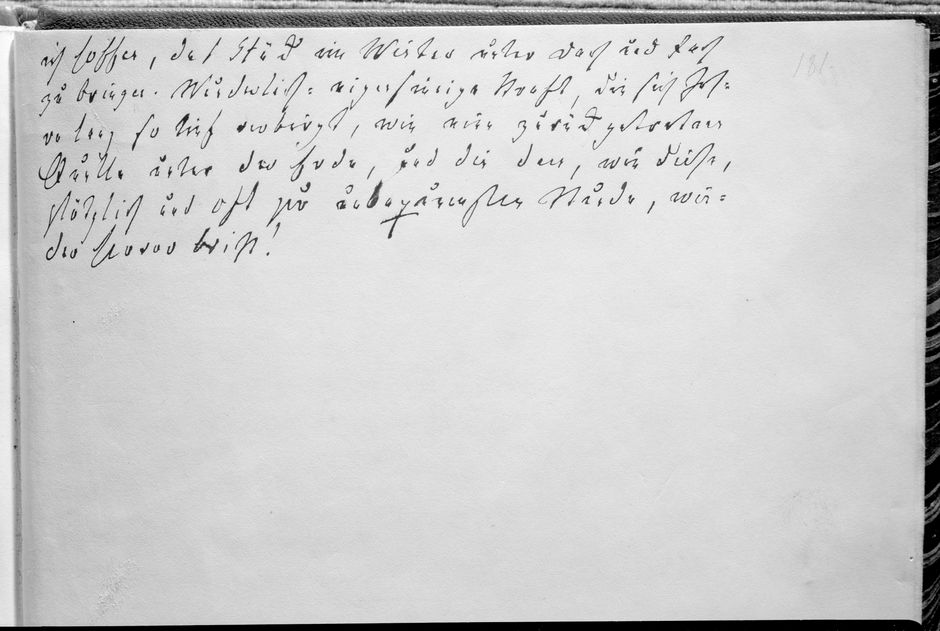 ich hoffen, das Stück im Winter unter Dach und Fach
zu bringen. Wunderlich-eigensinnige Kraft, die sich Jah-
re lang so tief verbirgt, wie eine zurückgetretene
Quelle unter der Erde, und die dann, wie diese,
plötzlich und oft zur unbequemsten Stunde, wie-
der hervor bricht!
181.